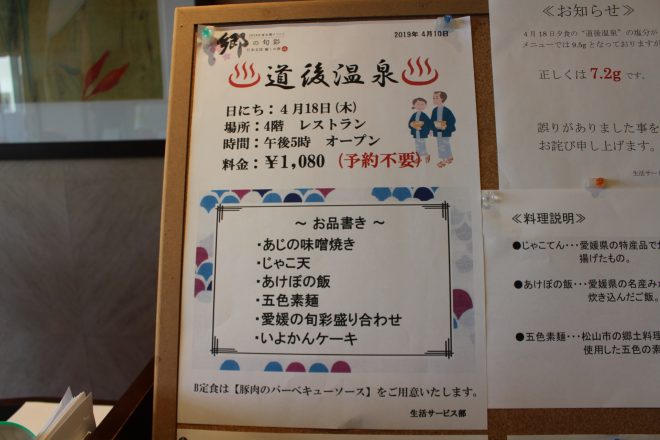 郷の旬彩
2019年 4月10日
道後温泉
日にち：4月18日(木)
場所：4階 レストラン
時間：午後5時 オープン
料金：￥1,080 (予約不要)
～ お品書き ～
・あじの味噌焼き
・じゃこ天
・あけぼの飯
・五色素麺
・愛媛の旬彩盛り合わせ
・いよかんケーキ
B定食は【豚肉のバーベキューソース】をご用意いたします。
生活サービス部
≪お知らせ≫
4月18日夕食の"道後温泉"の塩分が
メニューでは9.5gとなっておりますが
正しくは 7.2g です。
誤りがありました事を
お詫び申し上げます。
生活サービ
≪料理説明≫
●じゃこてん･･･愛媛県の特産品で
揚げたもの。
●あけぼの飯･･･愛媛県の名産み
炊き込んだご飯。
●五色素麺･･･松山市の郷土料理
使用した五色の素